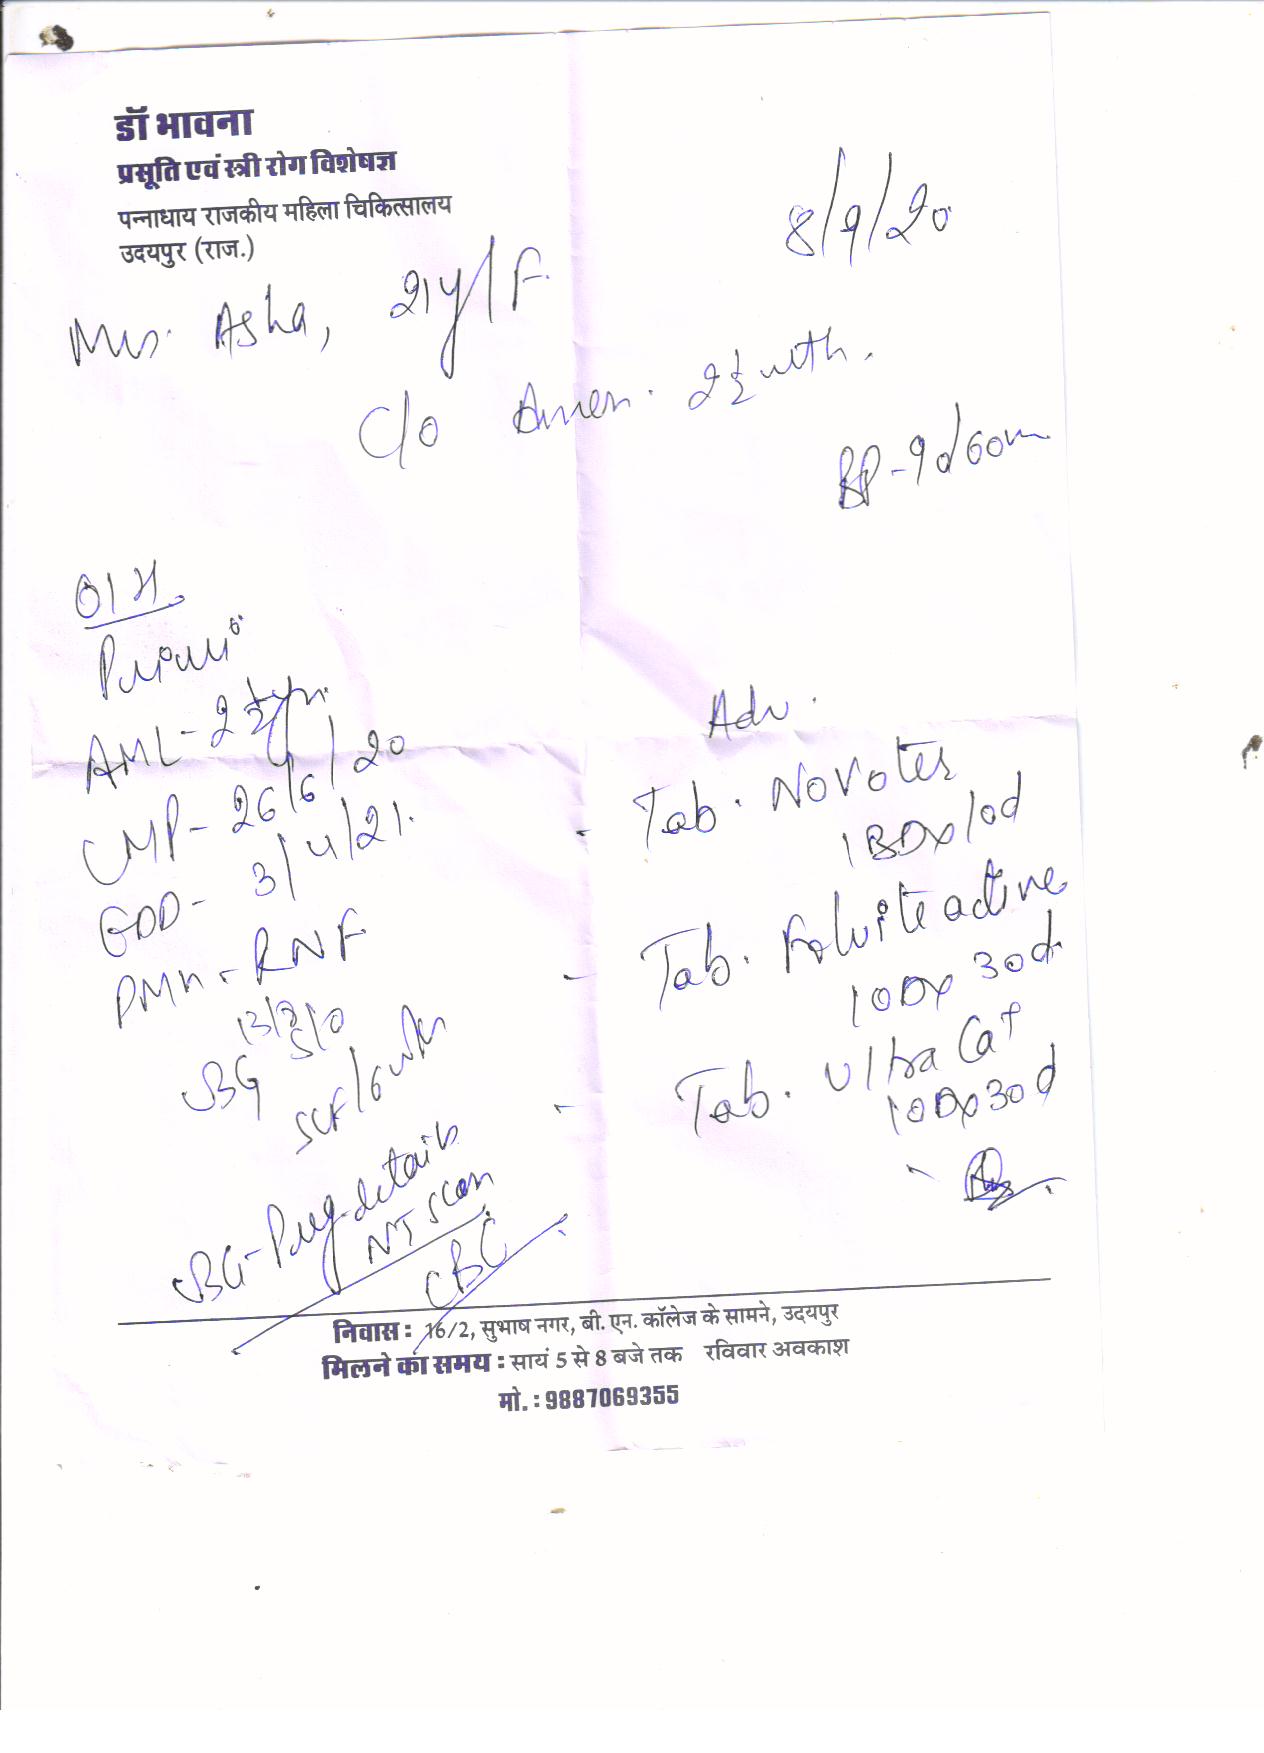 डॉ भावना
प्रसूति एवं स्त्री रोग विशेषज्ञ
पन्नाधाय राजकीय महिला चिकित्सालय
उदयपुर (राज.)
8/9/20
Mrs. Asha, 21y/F.
C/o Amen. 2½ mth.
BP-90/60m
O/H.
Primi
AML- 2½ yr.
LMP- 26/6/20
EDD- 3/4/21.
PMH- RNF
USG
SLF/6 wks
USG- Preg. details
NT scan
CBC
Adv.
- Tab. Novotes
1BDx10d
- Tab. Folvite active
1ODx30d
- Tab. Ultra Cat
1ODx30d
निवास : 16/2, सुभाष नगर, बी. एन. कॉलेज के सामने, उदयपुर
मिलने का समय : सायं 5 से 8 बजे तक रविवार अवकाश
मो. : 9887069355